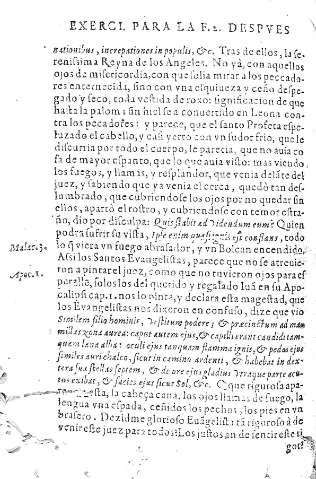 EXERCI. PARA LA F. 2. DESPVES
nationibus, increpationes in populis, &c. Tras de ellos, la se-
renissima Reyna de los Angeles. No yà, con aquellos
ojos de misericordia, con que solia mirar a los peccado-
res enternecida, sino con vna esquiueza y ceño despe-
gado y seco, toda vestida de roxo: significacion de que
hasta la paloma sin hiel se a conuertido en Leona con-
tra los peccadores: y parece, que el santo Profeta espe-
luzado el cabello, y casi yerto con vn sudor frio, que le
discurria por todo el cuerpo, le parecia, que no auia co-
sa de mayor espanto, que lo que auia visto: mas viendo
los fuegos, y llamas, y resplandor, que venia delãte del
juez, y sabiendo que ya venia el cerca, quedò tan des-
lombrado, que cubriendose los ojos por no quedar sin
ellos, apartò el rostro, y cubriendose con temor estra-
ño, dio por disculpa: Quis stabit ad videndum eum? Quien
podra sufrir su vista, Ipse enim quasi ignis est conflans, todo
Malac. 3.
lo q̃ viera vn fuego abrasador, y vn Bolcan encendido.
Assi los Santos Euangelistas, parece que no se atreuie-
Apoc. 1.
ron a pintar el juez, como que no tuuieron ojos para es-
peralle, solo los del querido y regalado Iuã en su Apo-
calipsi cap. 1. nos lo pinta, y declara esta magestad, que
los Euangelistas nos dixeron en confuso, dize que vio
Similem filio hominis, vestitum podere, & præcinctum ad ma-
millas zona aurea: caput autem ejus, & capilli erant candidi tam-
quam lana alba: oculi ejus tanquam flamma ignis, & pedes ejus
similes aurichalco, sicut in camino ardenti, & habebat in dex-
tera sua stellas septem, & de ore ejus gladius vtraque parte acu-
tus exibat, & facies ejus sicut Sol, &c. O que rigurosa apa-
riencia, la cabeça cana, los ojos llamas de fuego, la
lengua vna espada, ceñidos los pechos, los pies en vn
brasero. Dezidme glorioso Euãgelista tã riguroso à de
venir este juez para todos? Los justos an de sentir este ri-
gor?